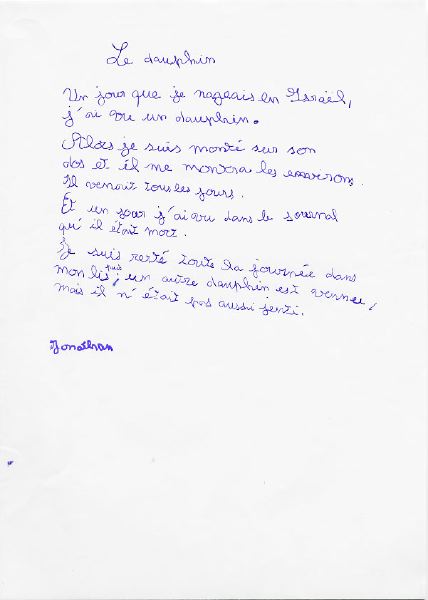 Le dauphin
Un jour que je nageais en Israël,
j'ai vu un dauphin.
Alors je suis monté sur son
dos et il me montra les environs.
Il venait tous les jours.
Et un jour j'ai vu dans le journal
qu'il était mort.
Je suis resté toute la journée dans
mon lis, puis un autre dauphin est venu,
mais il n'était pas aussi jenti.
Jonathan